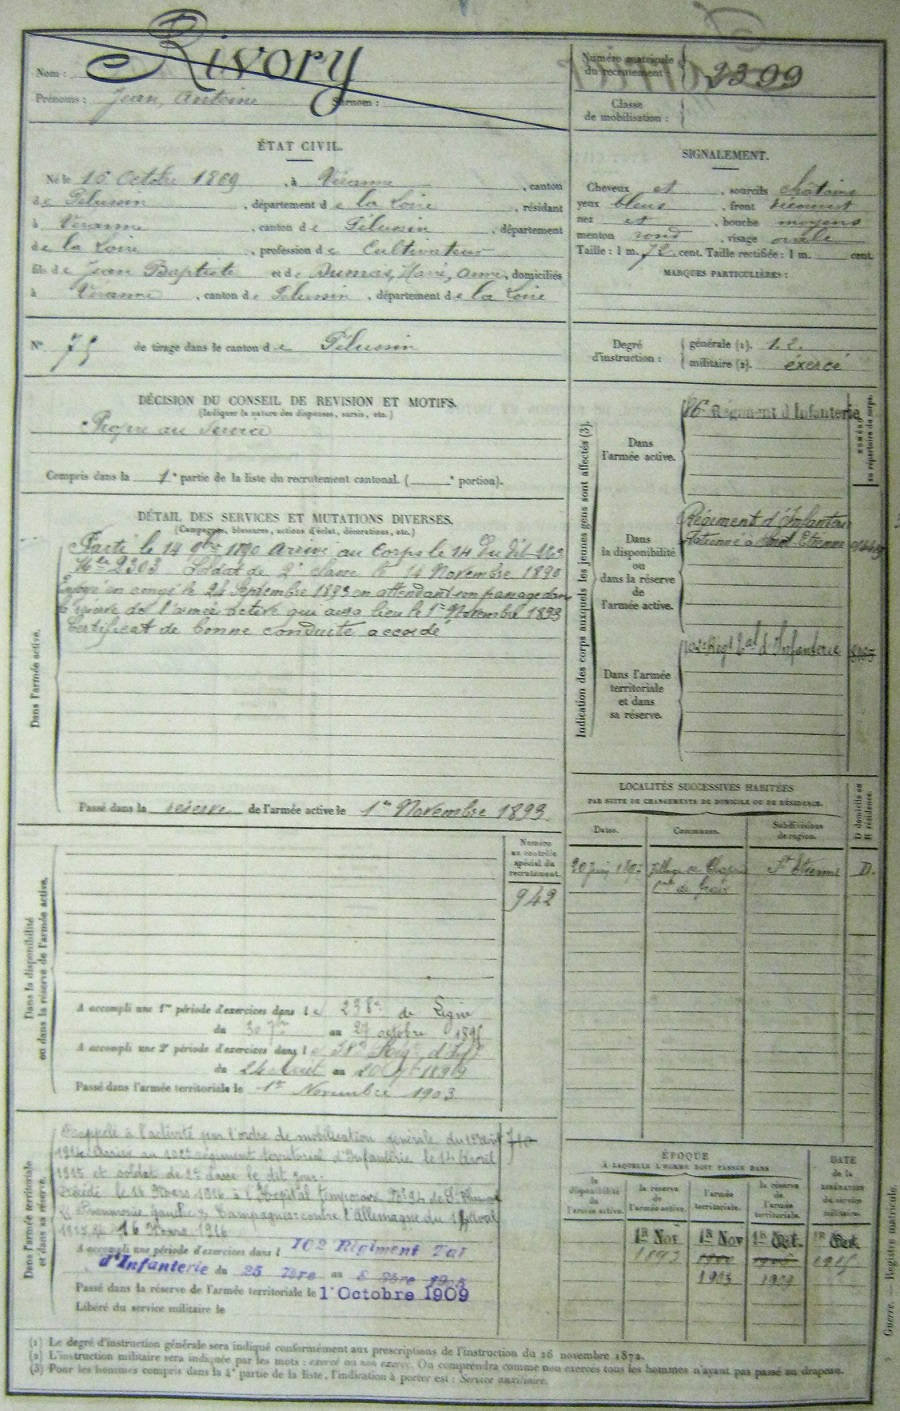 Nom : Rivory
Prénoms : Jean, Antoine Surnom :
Numéro matricule du recrutement : 2399
Classe de mobilisation :
ÉTAT CIVIL.
Né le 16 Octobre 1869, à Véranne, canton
de Pélussin, département de la Loire, résidant
à Véranne, canton de Pélussin, département
de la Loire, profession de Cultivateur
fils de Jean Baptiste et de Dumas, Marie, Anne, domiciliés
à Véranne, canton de Pélussin, département de la Loire
N° 75 de tirage dans le canton de Pélussin
DÉCISION DU CONSEIL DE REVISION ET MOTIFS.
(Indiquer la nature des dispenses, sursis, etc.)
Propre au Service
Compris dans la 1e partie de la liste du recrutement cantonal. ( e portion).
DÉTAIL DES SERVICES ET MUTATIONS DIVERSES.
(Campagnes, blessures, actions d'éclat, décorations, etc.)
Dans l'armée active.
Parti le 14 9bre 1890 arrivé au Corps le 14 du dit
Mle 2303 Soldat de 2e classe le 14 Novembre 1890
Envoyé en congé le 24 Septembre 1893 en attendant son passage dans
la réserve de l'armée active qui aura lieu le 1er Novembre 1893
Certificat de bonne conduite accordé
Passé dans la réserve de l'armée active le 1er Novembre 1893
Dans la disponibilité
ou dans la réserve de l'armée active.
Numéro
au contrôle
spécial du
recrutement.
942
A accompli une 1re période d'exercices dans le 238e de Ligne
du 30 7bre au 27 octobre 1896
A accompli une 2e période d'exercices dans le 38e Rég. d'Inf
du 24 au 20 1899
Passé dans l'armée territoriale le 1er Novembre 1903
Dans l'armée territoriale
et dans sa réserve.
Rappelé à l'activité par l'ordre de mobilisation générale du 1er août
1914 Arrivé au 102e régiment territorial d'Infanterie le 14 Avril
1915 et soldat de 2e classe le dit jour.
Décédé le 16 Mars 1916 à l'Hôpital temporaire
Pneumonie gauche Campagnes contre l'Allemagne du
1915 au 16 Mars 1916
A accompli une période d'exercices dans l 102 Régiment Tal
d'Infanterie du 25 au
Passé dans la réserve de l'armée territoriale le 1er Octobre 1909
Libéré du service militaire le
SIGNALEMENT.
Cheveux et, sourcils chatains
yeux bleus, front
nez et, bouche moyens
menton rond, visage ovale
Taille : 1 m. 72 cent. Taille rectifiée : 1 m. cent.
MARQUES PARTICULIÈRES :
Degré d'instruction : générale (1). 1.2.
militaire (2). exercé
Indication des corps auxquels les jeunes gens sont affectés (3).
Dans
l'armée active.
Régiment d'Infanterie
Dans
la disponibilité
ou
dans la réserve
de
l'armée active.
Régiment d'Infanterie
Stationné à Saint Etienne
Dans l'armée
territoriale
et dans
sa réserve.
102e Régt tal d'Infanterie
LOCALITÉS SUCCESSIVES HABITÉES
PAR SUITE DE CHANGEMENTS DE DOMICILE OU DE RÉSIDENCE.
Dates. Communes. Subdivisions de région. D domicile ou R résidence.
St Etienne D.
ÉPOQUE
À LAQUELLE L'HOMME DOIT PASSER DANS
la disponibilité de l'armée active.
la réserve de l'armée active.
l'armée territoriale.
la réserve de l'armée territoriale.
DATE de la LIBÉRATION du service militaire.
1er Nov 1er Nov 1er Oct. 1er Oct
1893 1900 1906 1915
1903 1909
(1) Le degré d'instruction générale sera indiqué conformément aux prescriptions de l'instruction du 26 novembre 1872.
(2) L'instruction militaire sera indiquée par les mots : exercé ou non exercé. On comprendra comme non exercés tous les hommes n'ayant pas passé au drapeau.
(3) Pour les hommes compris dans la 4e partie de la liste, l'indication à porter est : Service auxiliaire.
Guerre. — Registre matricule.